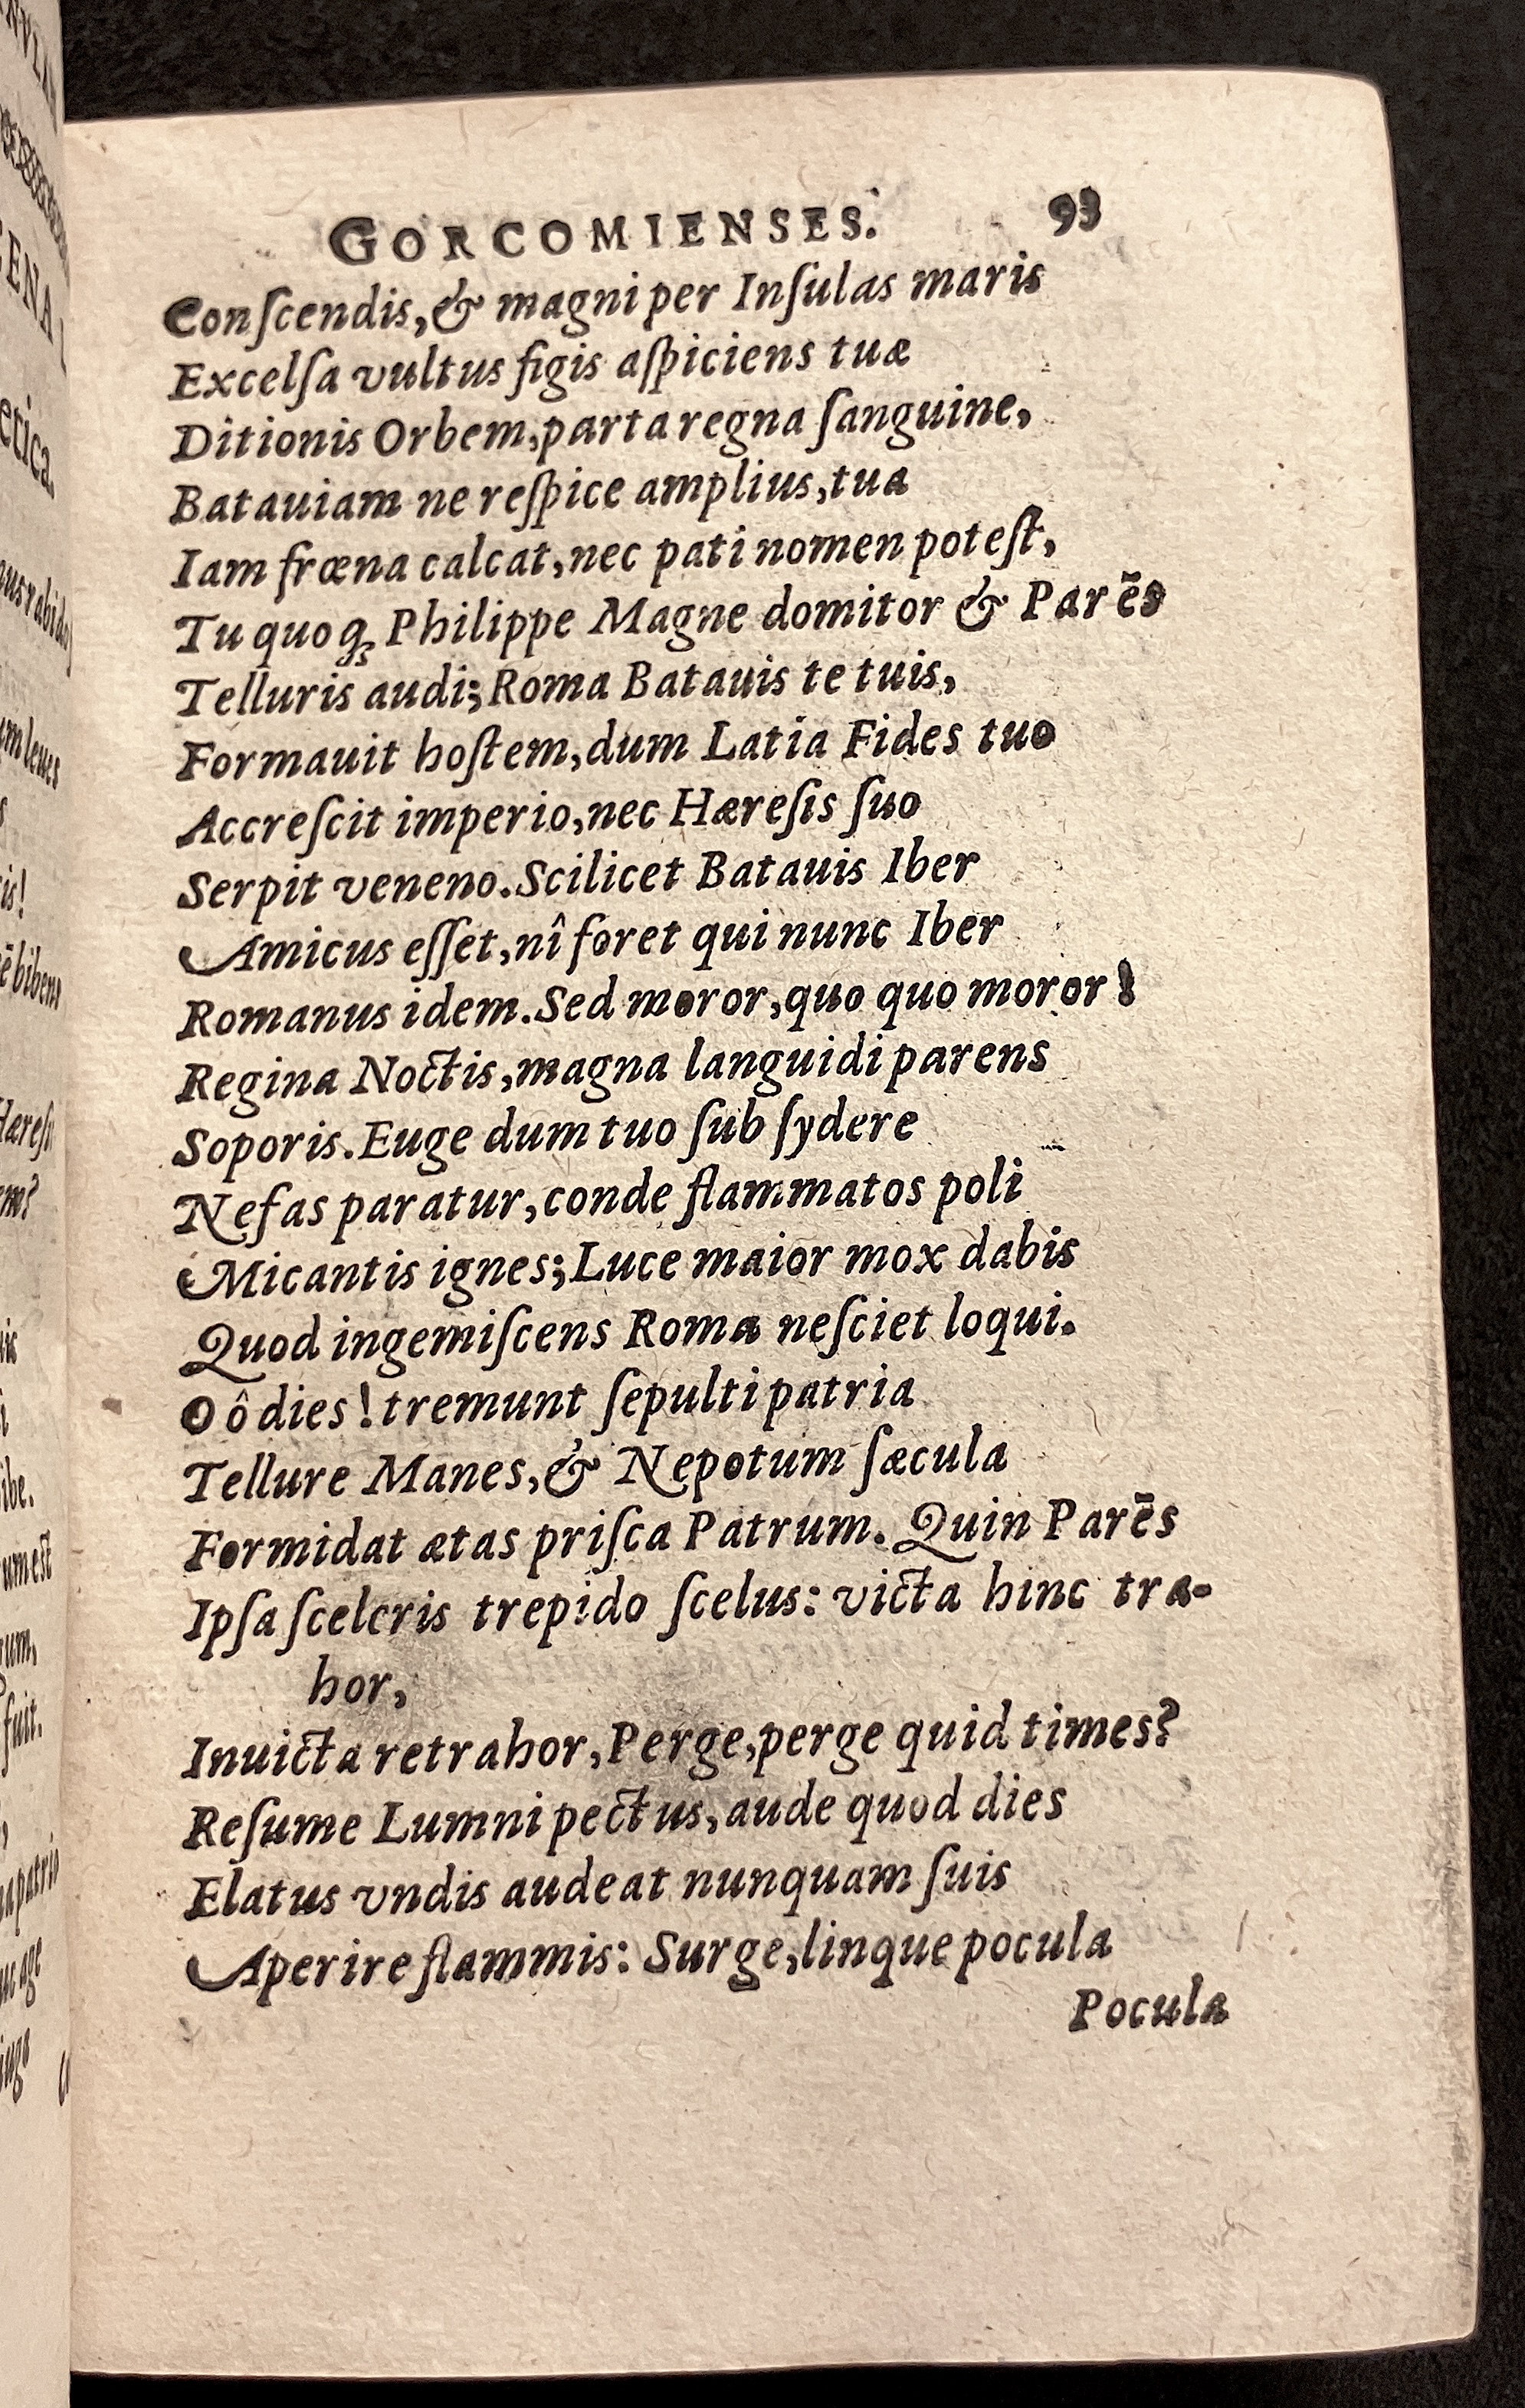 GORCOMIENSES. 93
Conſcendis, & magni per Inſulas maris
Excelſa vultus figis aſpiciens tuæ
Ditionis Orbem, parta regna ſanguine,
Batauiam ne reſpice amplius, tua
Iam fræna calcat, nec pati nomen poteſt,
Tu quoqꝫ Philippe Magne domitor & Parēs
Telluris audi; Roma Batauis te tuis,
Formauit hoſtem, dum Latia Fides tuo
Accreſcit imperio, nec Hæreſis ſuo
Serpit veneno. Scilicet Batauis Iber
Amicus eſſet, nî foret qui nunc Iber
Romanus idem. Sed moror, quo quo moror!
Regina Noctis, magna languidi parens
Soporis. Euge dum tuo ſub ſydere
Nefas paratur, conde flammatos poli
Micantis ignes; Luce maior mox dabis
Quod ingemiſcens Roma neſciet loqui.
O ô dies! tremunt ſepulti patria
Tellure Manes, & Nepotum ſæcula
Formidat ætas priſca Patrum. Quin Parēs
Ipſa ſceleris trepido ſcelus: victa hinc tra-
hor,
Inuicta retrahor, Perge, perge quid times?
Reſume Lumni pectus, aude quod dies
Elatus vndis audeat nunquam ſuis
Aperire flammis: Surge, linque pocula
Pocula
etica.
is!
ē bibens
Hæreſi
em?
ibe.
um eſt
fuit.